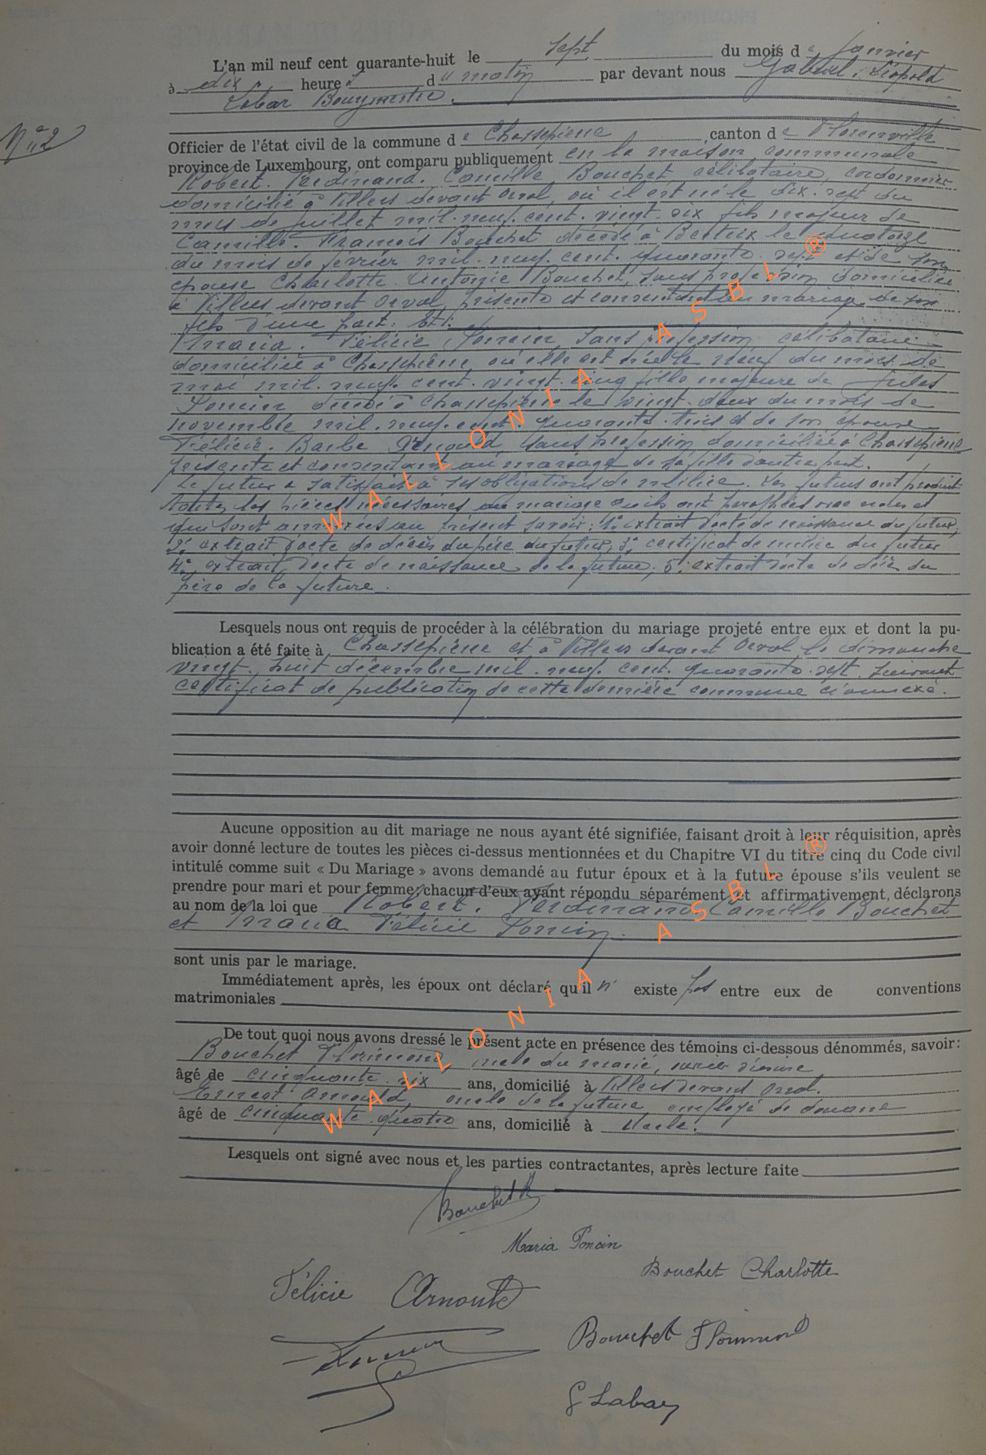 L'an mil neuf cent quarante-huit le sept du mois de janvier
à dix heures du matin par devant nous Gabriel. Léopold
Labar Bourgmestre.
N° 2
Officier de l'état civil de la commune de Chassepierre, canton de Florenville
province de Luxembourg, ont comparu publiquement en la maison communale
Robert. Ferdinand. Camille Bouchet célibataire, cordonnier
domicilié à Villers devant Orval, où il est né le dix-sept du
mois de juillet mil. neuf. cent. vingt. six fils majeur de
Camille. François Bouchet décédé à le quatorze
du mois de février mil. neuf. cent. quarante. sept et de son
épouse Charlotte. Bouchet, sans profession domiciliée
à Villers devant Orval, présente et consentant au mariage de son
fils d'une part. Et:
Maria. Félicie Poncin, sans profession célibataire
domiciliée à Chassepierre, où elle est née le neuf du mois de
mai mil. neuf. cent. vingt. cinq fille majeure de Jules
Poncin décédé à Chassepierre le vingt. deux du mois de
novembre mil. neuf. cent. quarante. trois et de son épouse
Félicie. Barbe Arnould sans profession domiciliée à Chassepierre
présente et consentant au mariage de sa fille d'autre part.
Le futur a satisfait à ses obligations de milice. Les futurs ont produit
toutes les pièces nécessaires au mariage qu'ils ont paraphées avec nous et
qui sont annexées au présent savoir: 1° extrait d'acte de naissance du futur,
2° extrait d'acte de décès du père du futur, 3° certificat de milice du futur
4° extrait d'acte de naissance de la future, 5° extrait d'acte de décès du
père de la future.
Lesquels nous ont requis de procéder à la célébration du mariage projeté entre eux et dont la pu-
blication a été faite à Chassepierre et à Villers devant Orval le dimanche
vingt. huit décembre mil. neuf. cent. quarante. sept. suivant
certificat de publication de cette dernière commune ci annexé.
Aucune opposition au dit mariage ne nous ayant été signifiée, faisant droit à leur réquisition, après
avoir donné lecture de toutes les pièces ci-dessus mentionnées et du Chapitre VI du titre cinq du Code civil
intitulé comme suit « Du Mariage » avons demandé au futur époux et à la future épouse s'ils veulent se
prendre pour mari et pour femme; chacun d'eux ayant répondu séparément et affirmativement, déclarons
au nom de la loi que Robert. Ferdinand Camille Bouchet
et Maria Félicie Poncin.
sont unis par le mariage.
Immédiatement après, les époux ont déclaré qu'il n' existe pas entre eux de conventions
matrimoniales
De tout quoi nous avons dressé le présent acte en présence des témoins ci-dessous dénommés, savoir:
Bouchet Florimond oncle du marié,
âgé de cinquante. six ans, domicilié à Villers devant Orval.
Ernest Arnould, oncle de la future, employé de douane
âgé de cinquante. quatre ans, domicilié à
Lesquels ont signé avec nous et les parties contractantes, après lecture faite
Bouchet R
Maria Poncin
Bouchet Charlotte
Félicie Arnould
Bouchet Florimond
G Labar
WALLONIA ASBL ®
WALLONIA ASBL ®